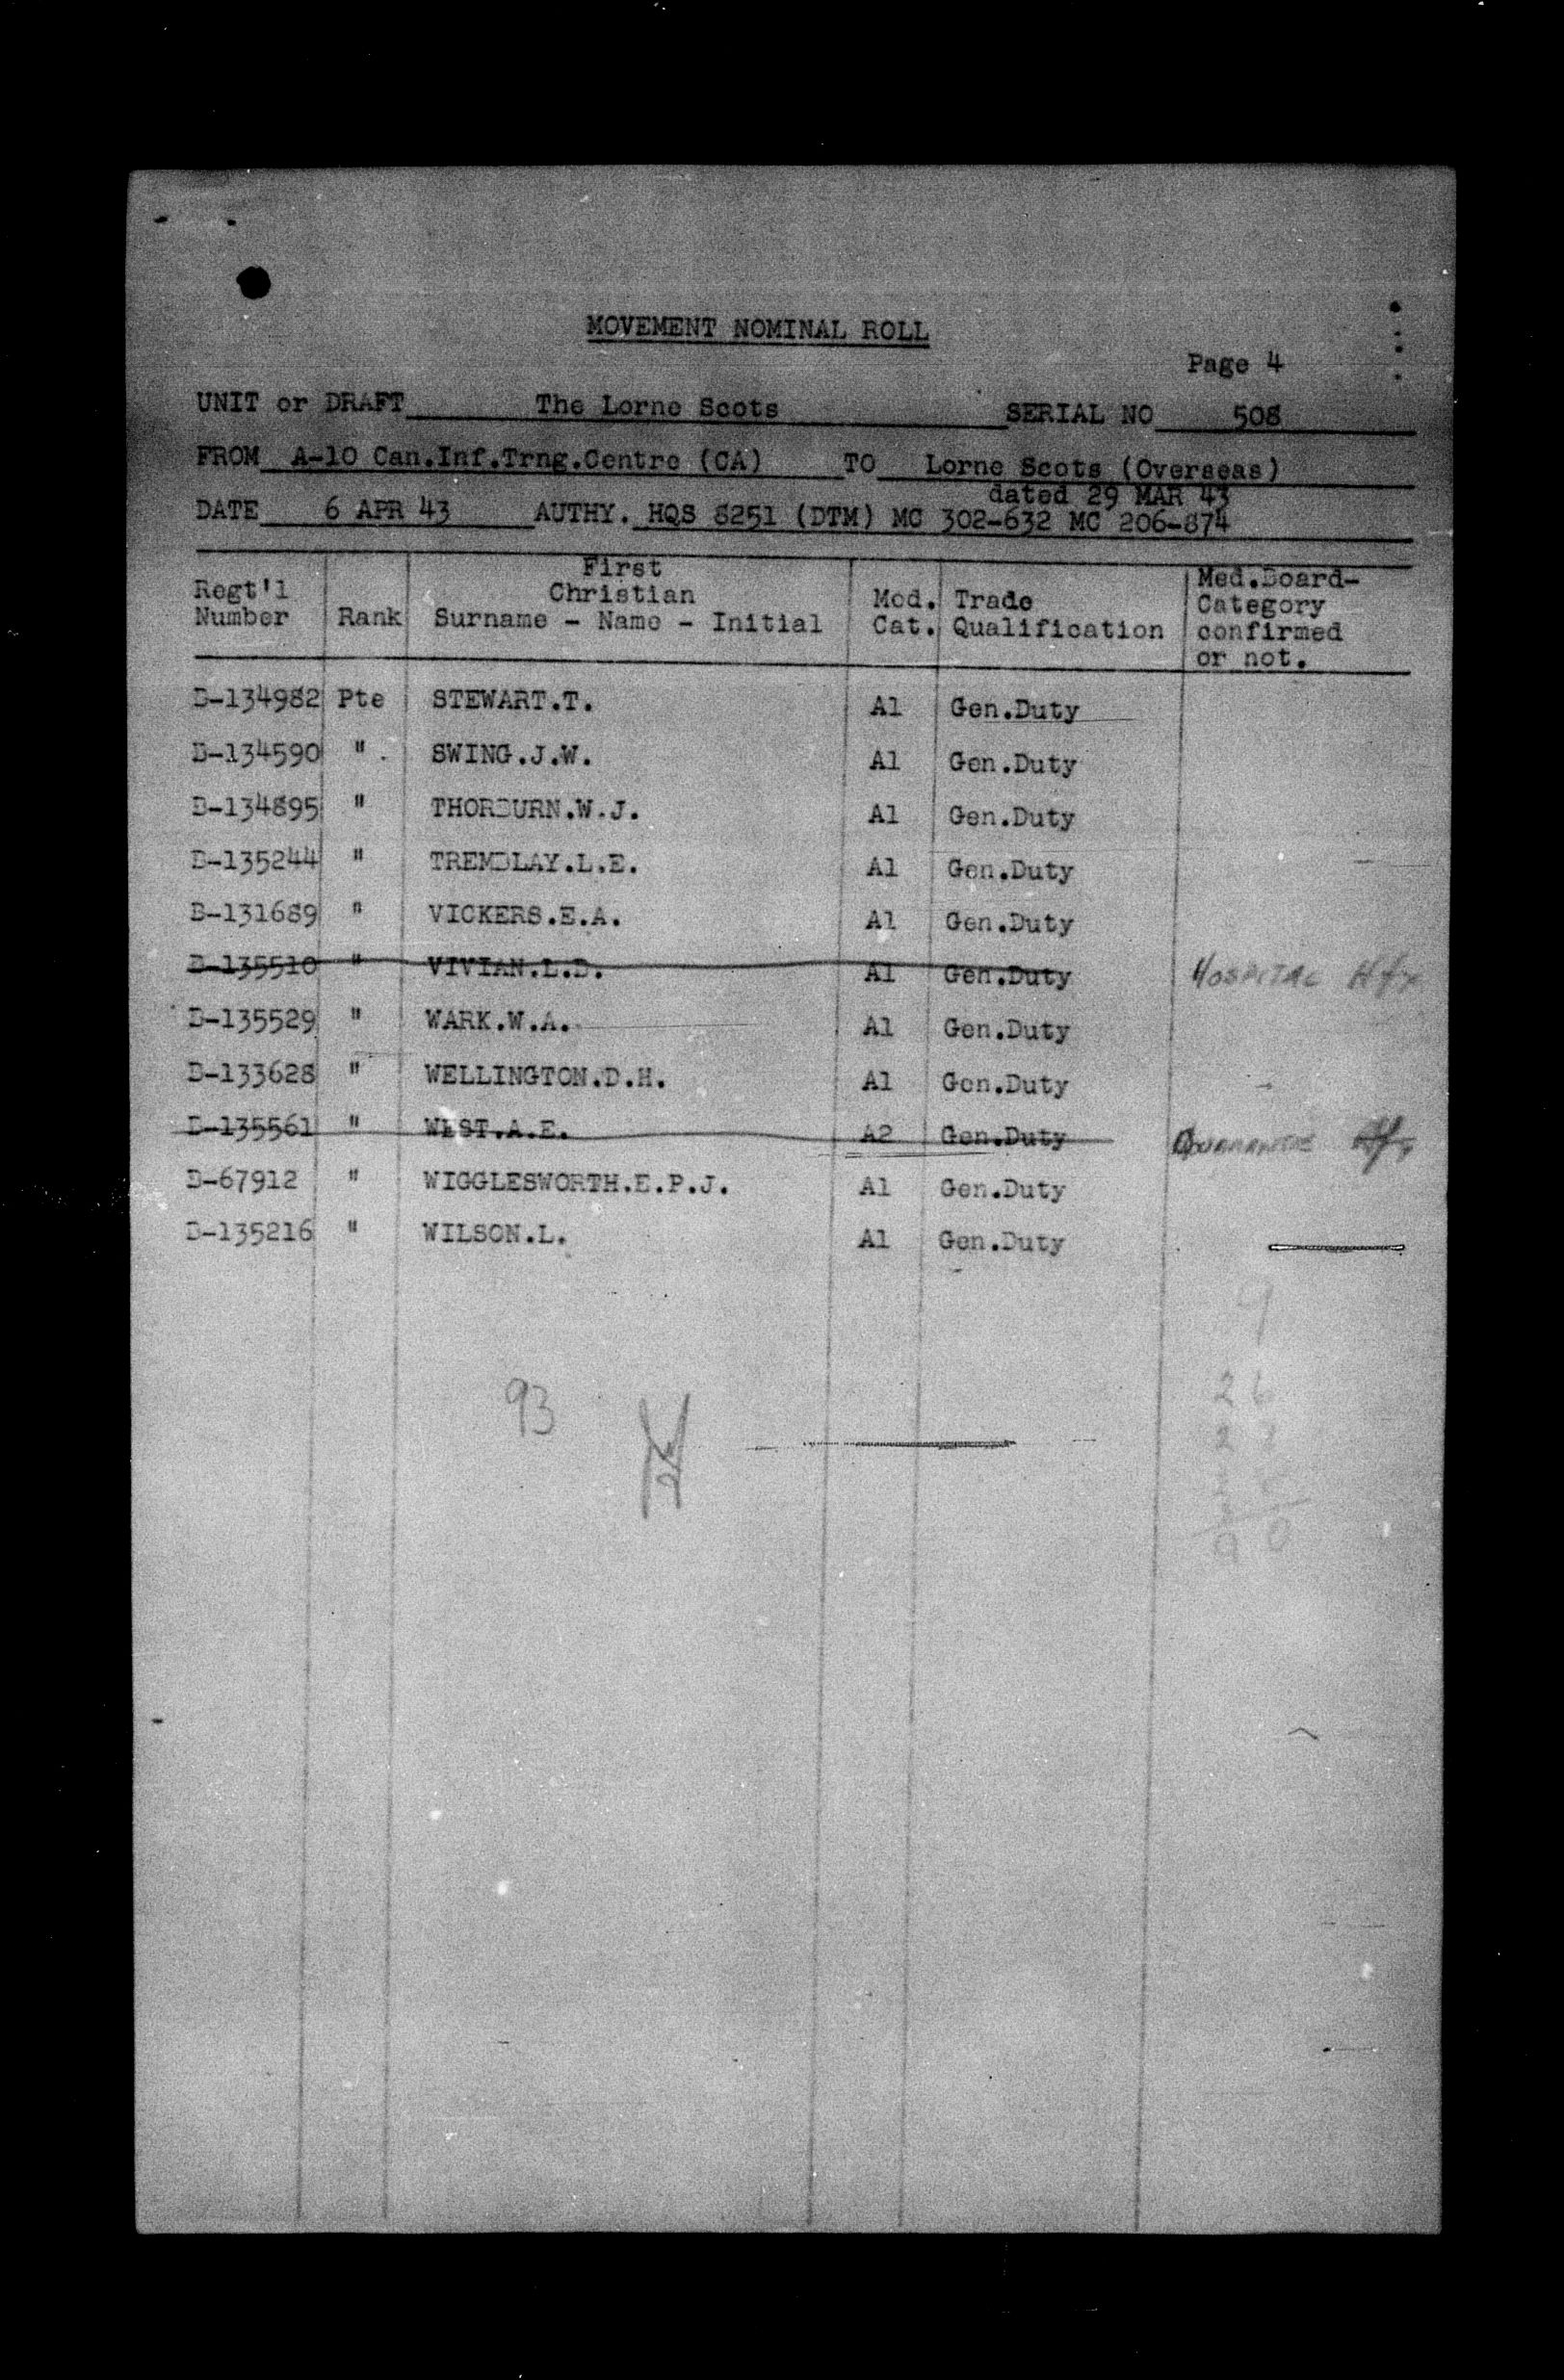 MOVEMENT NOMINAL ROLL
Page 4
UNIT or DRAFT The Lorne Scots SERIAL NO 508
FROM A-10 Can.Inf.Trng.Centre (CA) TO Lorne Scots (Overseas)
dated 29 MAR 43
DATE 6 APR 43 AUTHY. HQS 8251 (DTM) MC 302-632 MC 206-874
First
Regt'l Christian Med. Trade Med.Board-
Number Rank Surname - Name - Initial Cat. Qualification Category
confirmed
or not.
B-134982 Pte STEWART.T. A1 Gen.Duty
B-134590 " SWING.J.W. A1 Gen.Duty
B-134895 " THORBURN.W.J. A1 Gen.Duty
B-135244 " TREMBLAY.L.E. A1 Gen.Duty
B-131689 " VICKERS.E.A. A1 Gen.Duty
B-135510 " VIVIAN.L.D. A1 Gen.Duty HOSPITAL Hfx
B-135529 " WARK.W.A. A1 Gen.Duty
B-133628 " WELLINGTON.D.H. A1 Gen.Duty
B-135561 " WEST.A.E. A2 Gen.Duty QUARANTINE Hfx
D-67912 " WIGGLESWORTH.E.P.J. A1 Gen.Duty
B-135216 " WILSON.L. A1 Gen.Duty
9
93
26
90